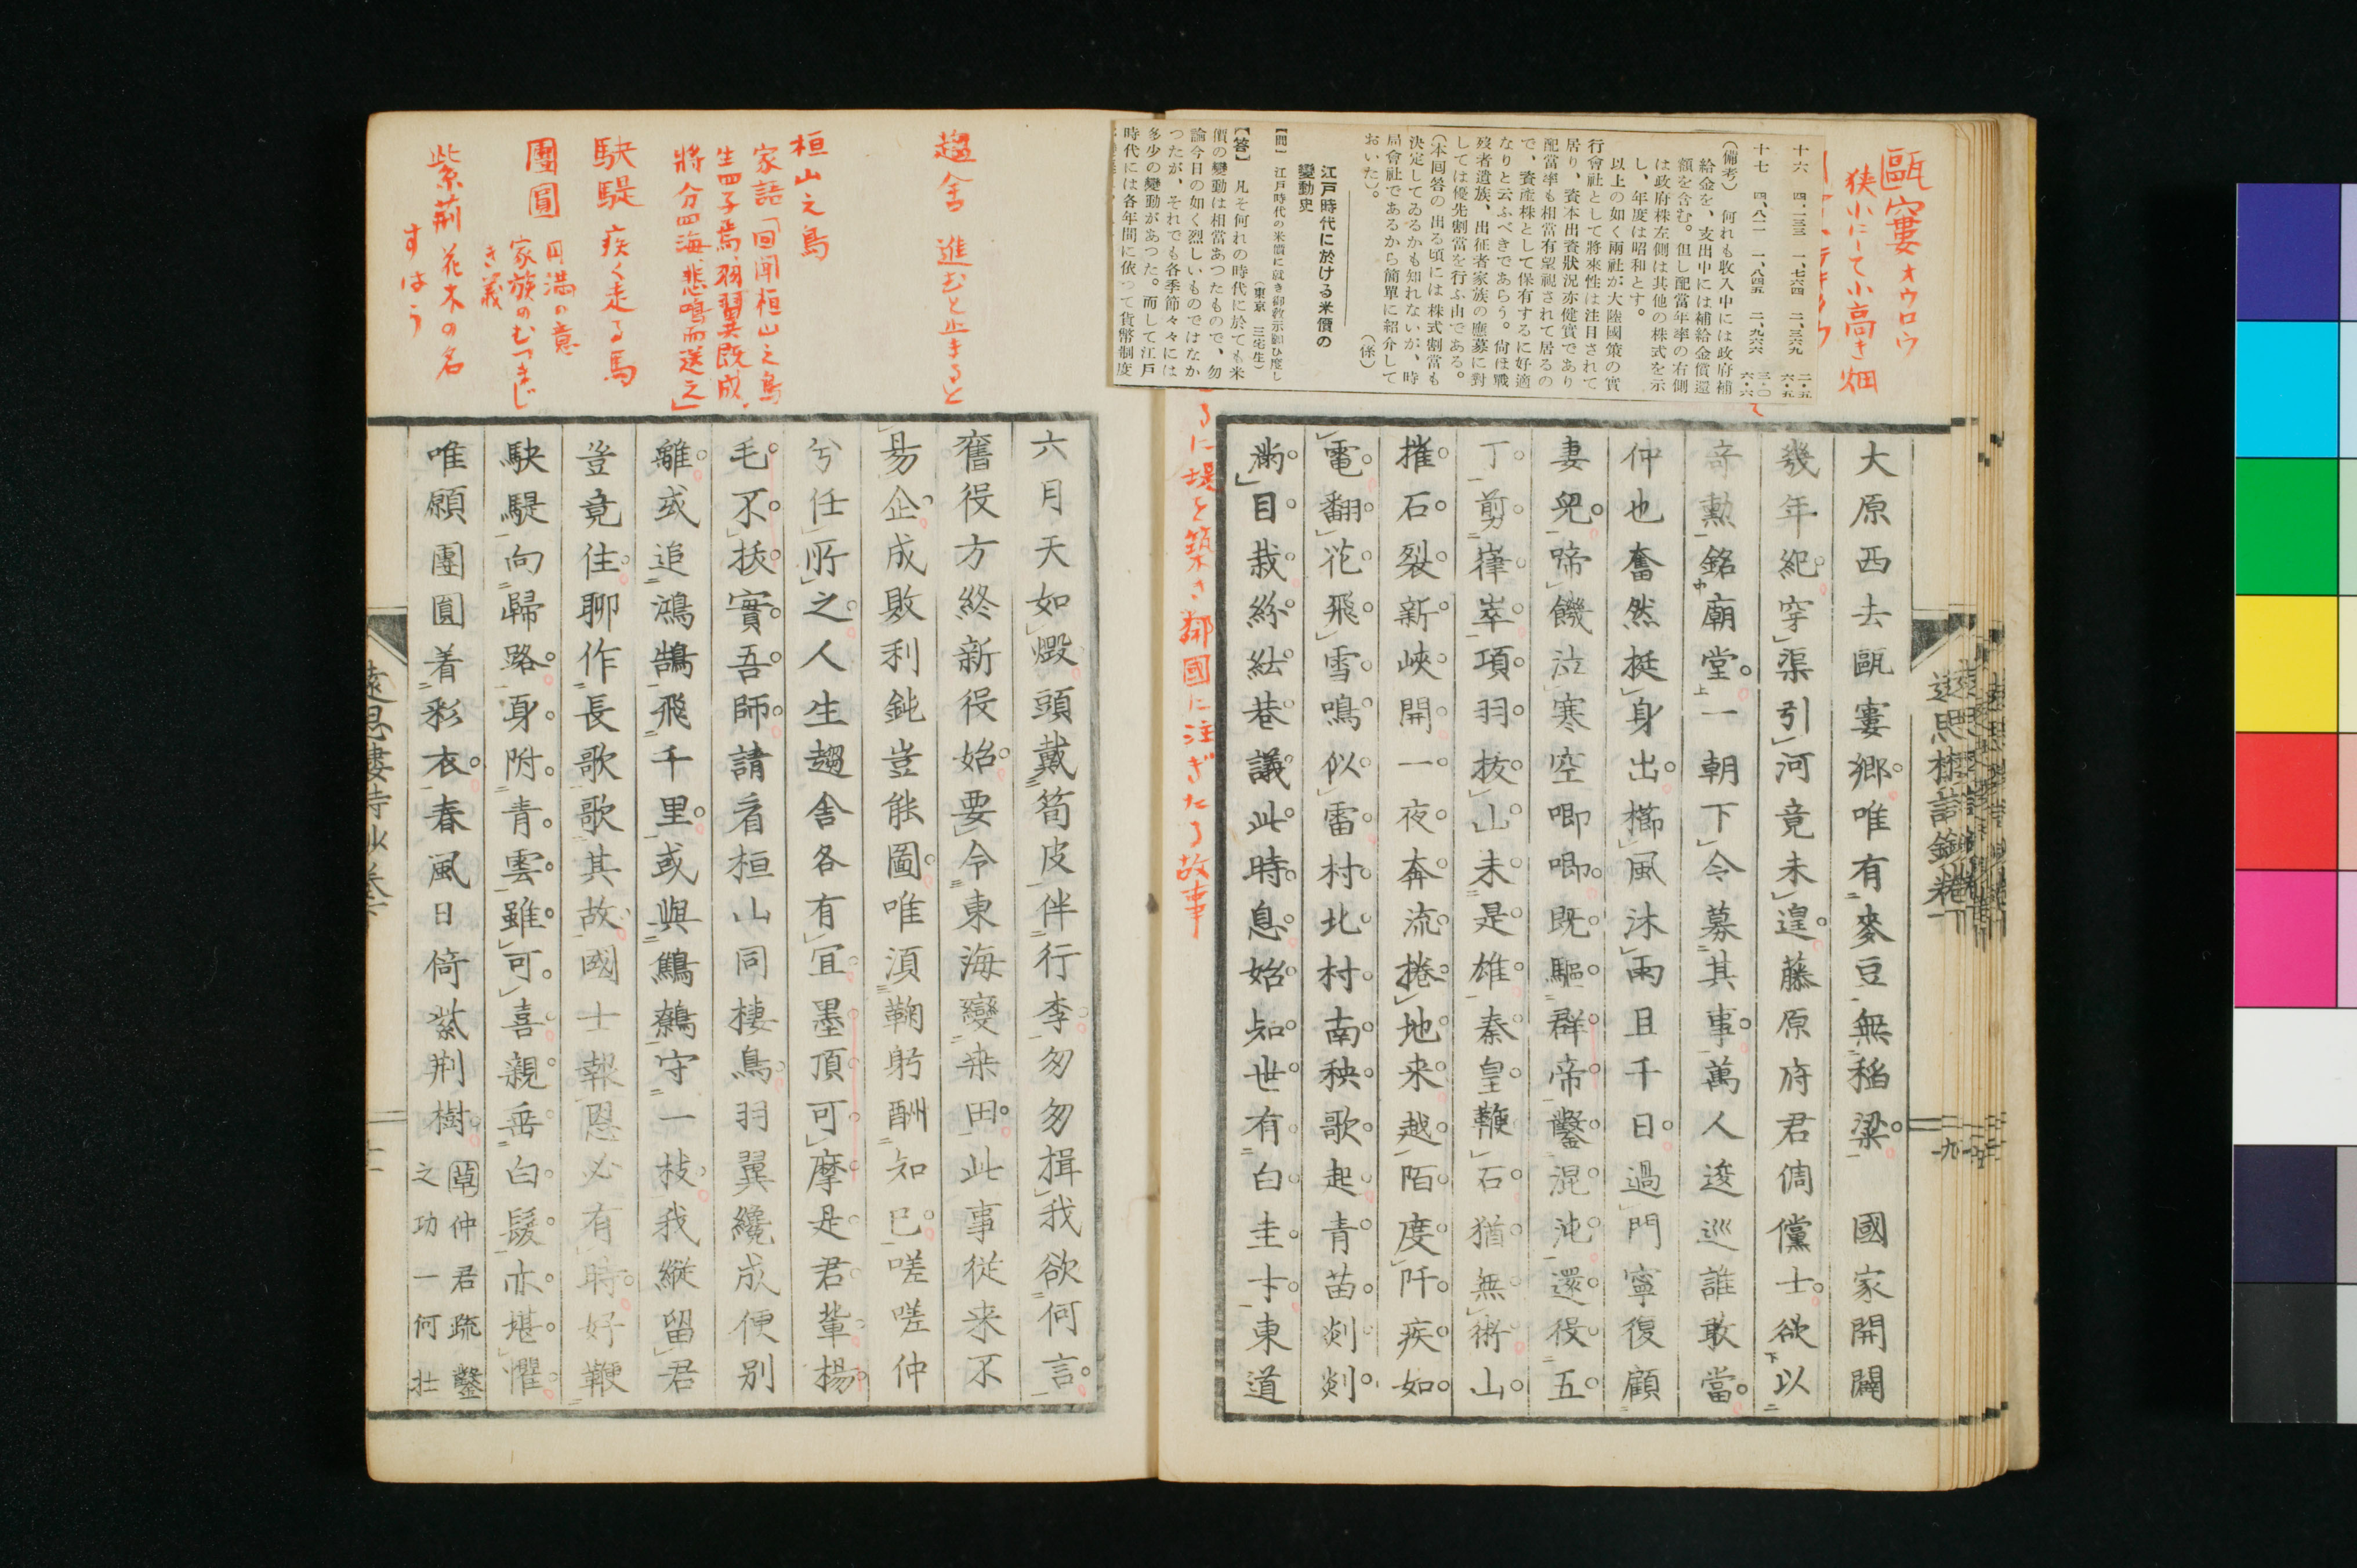 甌窶オウロウ
狭小にして小高き畑
十六 四、一三三 一、七六四 二、三六九 二・五 六・五
十七 四、八一一 一、八四五 二、九六六 三・〇 六・六
(備考) 何れも收入中には政府補
給金を、支出中には補給金償還
額を含む。但し配當年率の右側
は政府株左側は其他の株式を示
し、年度は昭和とす。
以上の如く兩社が大陸國策の實
行會社として將來性は注目されて
居り、資本出資狀況亦健實であり
配當率も相當有望視されて居るの
で、資產株として保有するに好適
なりと云ふべきであらう。尙ほ戰
歿者遺族、出征者家族の應募に對
しては優先割當を行ふ由である。
(本回答の出る頃には株式割當も
決定してゐるかも知れないが、時
局會社であるから簡單に紹介して
おいた)。 (係)
江戸時代に於ける米價の
變動史
【問】 江戸時代の米價に就き御敎示願ひ度し
(東京 三宅生)
【答】 凡そ何れの時代に於ても米
價の變動は相當あつたもので、勿
論今日の如く烈しいものではなか
つたが、それでも各季節々々には
多少の變動があつた。而して江戸
時代には各年間に依つて貨幣制度
るに堤を築き鄰國に注ぎたる故事
大原西去甌窶鄉唯有麥豆無稻粱 國家開闢
幾年紀穿渠引河竟未遑藤原府君倜儻士欲以
奇勳銘廟堂一朝下令募其事萬人逡巡誰敢當
仲也奮然挺身出櫛風沐雨且千日過門寧復顧
妻兒啼饑泣寒空喞喞既驅群帝鑿混沌還役五
丁剪嵂崒項羽拔山未是雄秦皇鞭石猶無術山
摧石裂新峽開一夜奔流捲地来越陌度阡疾如
電翻花飛雪鳴似雷村北村南秧歌起青苗剡剡
滿目栽紛紜巷議此時息始知世有白圭才東道
六月天如燬頭戴筍皮伴行李匆匆揖我欲何言
舊役方終新役始要令東海變桒田此事従来不
易企成敗利鈍豈能圖唯湏鞠躬酬知己嗟嗟仲
兮任所之人生趨舍各有宜墨頂可摩是君輩楊
毛不拔實吾師請看桓山同棲鳥羽翼纔成便別
離或追鴻鵠飛千里或與鷦鷯守一枝我縱留君
豈竟住聊作長歌歌其故國士報恩必有時好鞭
駃騠向歸路身附青雲雖可喜親垂白髮亦堪懼
唯願團圓着彩衣春風日倚紫荆樹
草仲君疏鑿
之功一何壯
趨舎 進むと止まると
桓山之鳥
家語「回聞桓山之鳥
生四子焉、羽翼既成、
將分四海、悲鳴而送之」
駃騠 疾く走る馬
團圓 円満の意
家族のむつまじ
き義
紫荊 花木の名
すはう